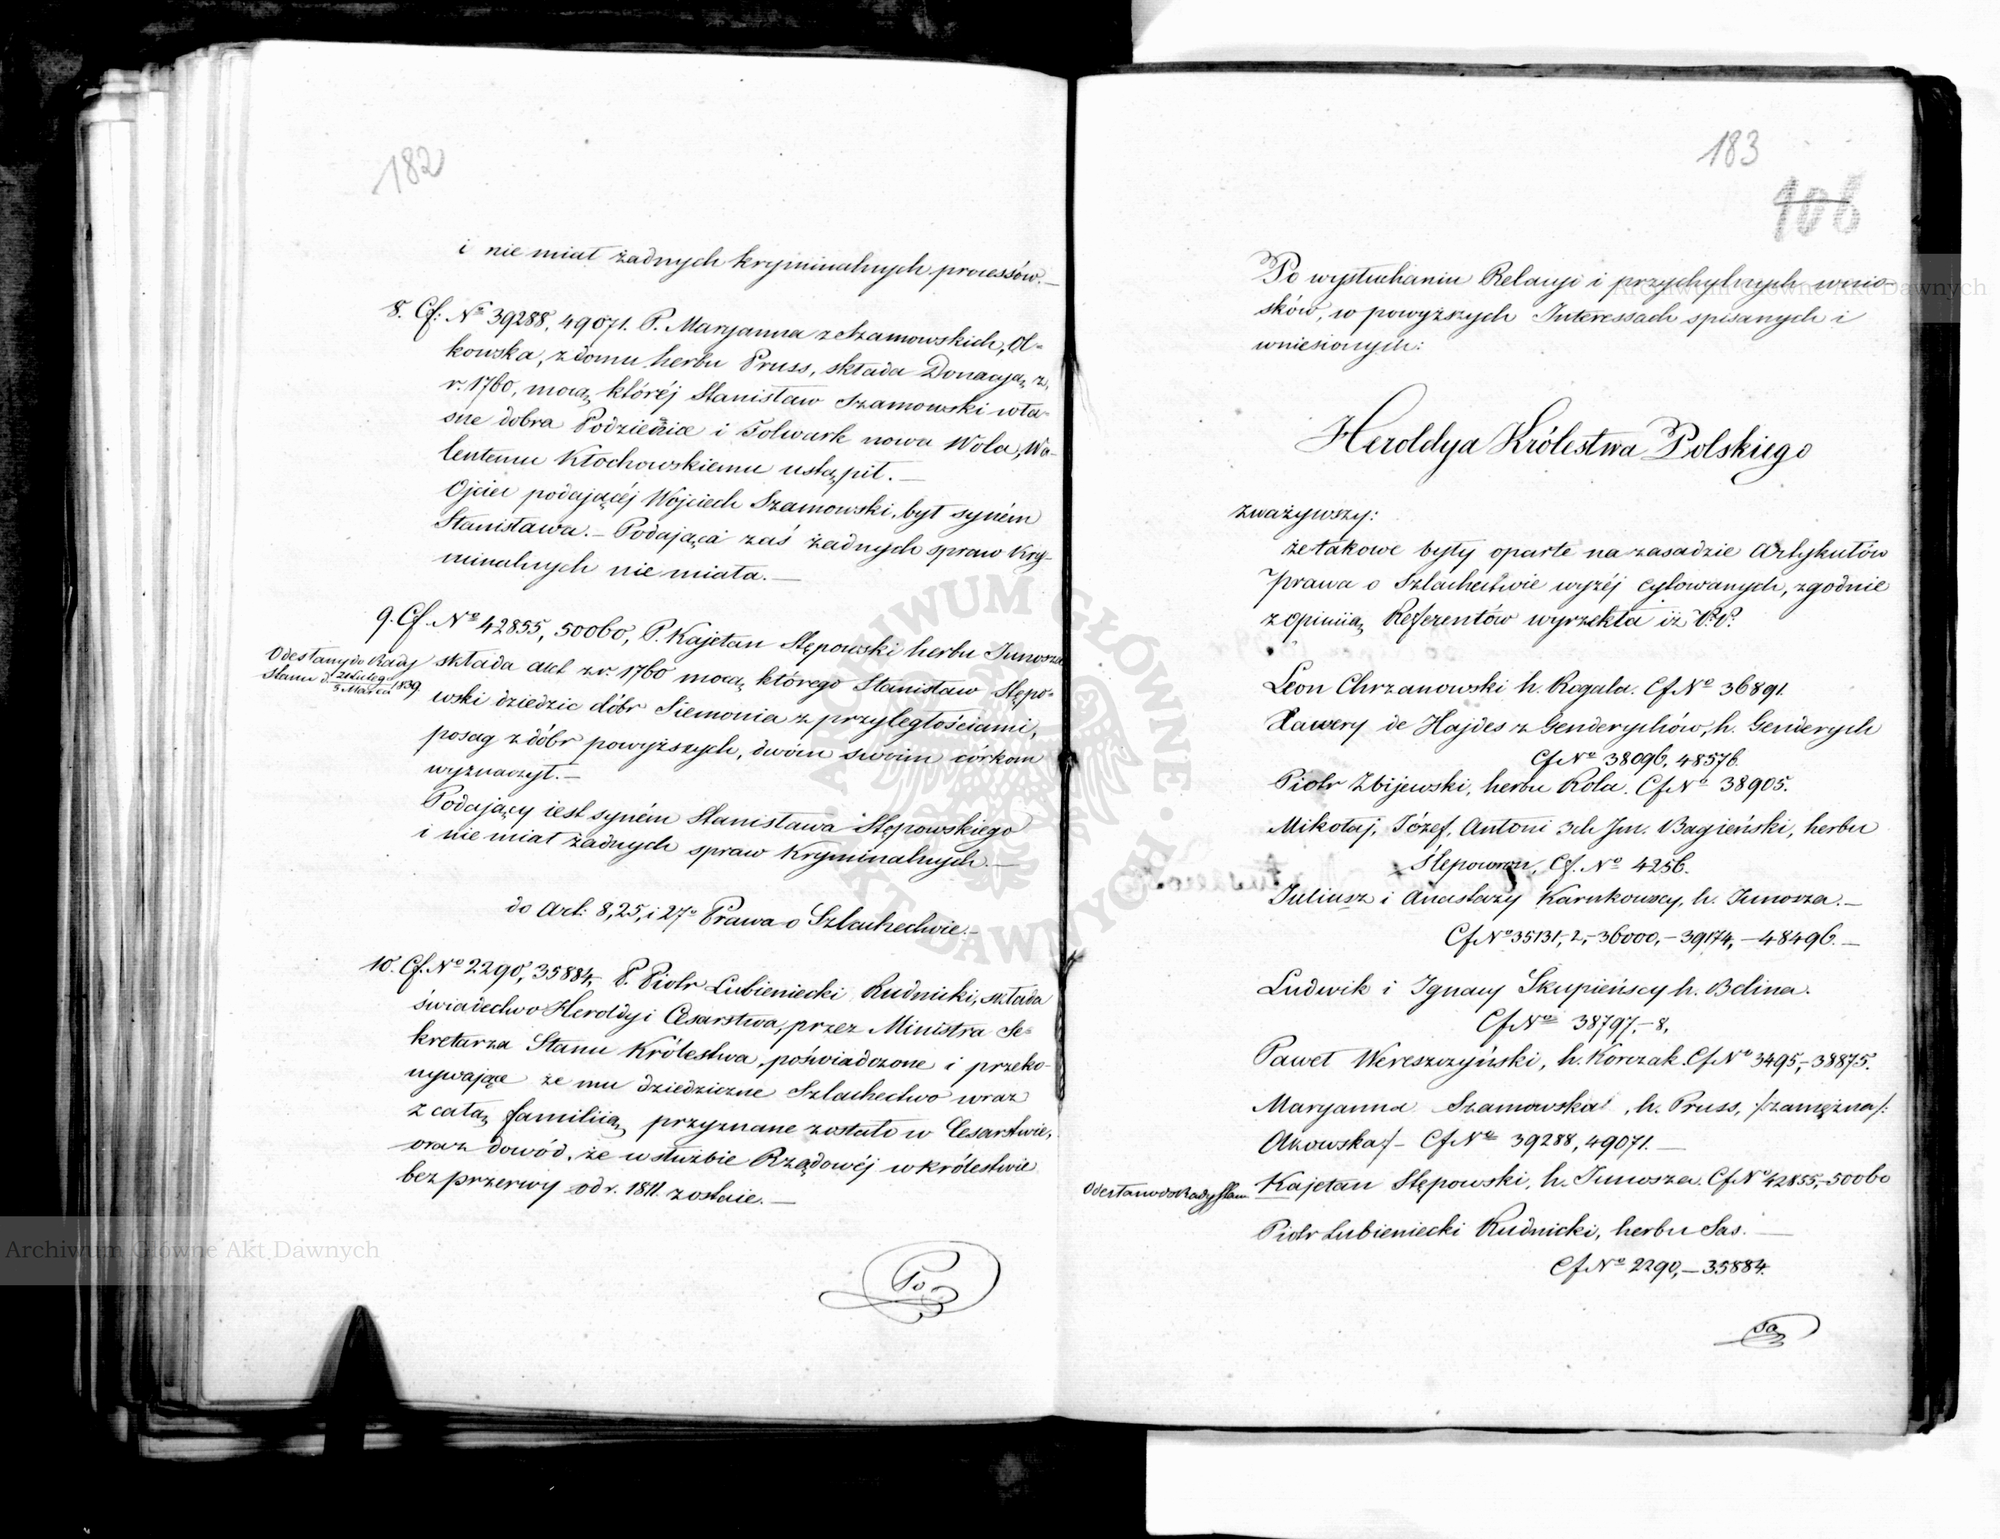 182
i nie miał żadnych kryminalnych processów.—
8. Cf: No 39288, 49071. P. Maryanna z Szamowskich, Ol-
kowska, z domu herbu Pruss, składa Donacyą z
r. 1760, mocą któréj Stanisław Szamowski wła-
sne dobra i Folwark nowa Wola, Wa-
lentemu Kłochowskiemu ustąpił.—
Ojciec podającéj Wojciech Szamowski, był synem
Stanisława.— Podająca zaś żadnych spraw Kry-
minalnych nie miała.—
9. Cf. No 42855, 50060, P. Kajetan Stępowski herbu Junosza
Odesłany do Rady
Stanu d. 21 Lutego / 5 Marca 1839
składa akt z r. 1760 mocą którego Stanisław Stępo-
wski dziedzic dóbr Siemonia z przyległościami,
posag z dóbr powyższych, dwóm swoim córkom
wyznaczył.—
Podający iest syném Stanisława Stępowskiego
i nie miał żadnych spraw Kryminalnych.—
do Art: 8, 25, i 27o Prawa o Szlachectwie.—
10. Cf. No 2290, 35884, P. Piotr Lubieniecki Rudnicki, składa
świadectwo Heroldyi Cesarstwa, przez Ministra Se-
kretarza Stanu Królestwa, poświadczone i przeko-
nywające że mu dziedziczne Szlachectwo wraz
z całą familią przyznane zostało w Cesarstwie,
oraz dowód, że w służbie Rządowéj w królestwie
bez przerwy od r. 1811. zostaie.—
Po
183
108
Po wysłuchaniu Relacyi i przychylnych wnio-
sków, w powyższych Interessach spisanych i
wniesionych:
Heroldya Królestwa Polskiego
zważywszy:
że takowe były oparte na zasadzie Artykułów
prawa o Szlachectwie wyżéj cytowanych, zgodnie
z opiniią Referentów wyrzekła iż P.P.
Leon Chrzanowski h. Rogala. Cf No 36891.
Xawery de Hajdes z Genderychów, h. Genderych
Cf No 38096, 48576.
Piotr Zbijewski, herbu Rola. Cf No 38905.
Mikołaj, Józef, Antoni 3ch Jm. Bagieński, herbu
Ślepowron, Cf. No 4256.
Juliusz i Anastazy Karnkowscy, h. Junosza.—
Cf No 35131,-2,-36000,-39174,-48496.—
Ludwik i Ignacy Skupieńscy h. Belina.
Cf No 38797,-8,
Paweł Wereszczyński, h. Korczak. Cf No 3495,-38875.
Maryanna Szamowska, h. Pruss, /:zamężna/:
Olkowska/- Cf No 39288, 49071.—
Odesłano do Rady Stanu
Kajetan Stępowski, h. Junosza. Cf No 42855,-50060
Piotr Lubieniecki Rudnicki, herbu Sas.—
Cf No 2290,-35884.
Archiwum Główne Akt Dawnych
Archiwum Główne Akt Dawnych
ARCHIWUM GŁÓWNE AKT DAWNYCH